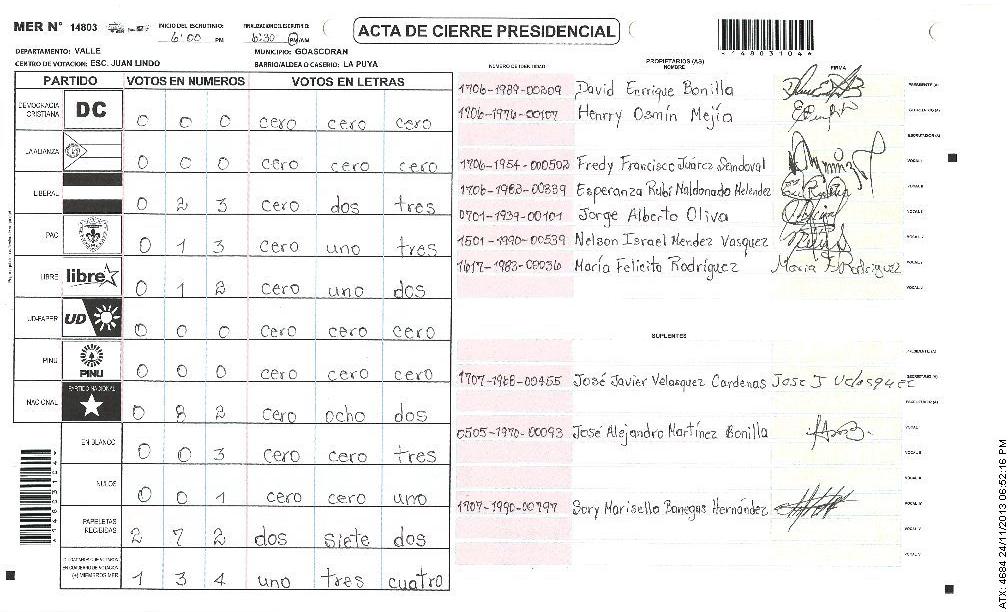 MER N° 14803
INICIO DEL ESCRUTINIO:
6:00 PM
FINALIZACION DEL ESCRUTINIO:
6:30 PM/AM
ACTA DE CIERRE PRESIDENCIAL
DEPARTAMENTO: VALLE
MUNICIPIO: GOASCORAN
CENTRO DE VOTACION: ESC. JUAN LINDO
BARRIO/ALDEA O CASERIO: LA PUYA
PARTIDO VOTOS EN NUMEROS VOTOS EN LETRAS
DEMOCRACIA CRISTIANA DC 0 0 0 cero cero cero
LA ALIANZA 0 0 0 cero cero cero
LIBERAL 0 2 3 cero dos tres
PAC 0 1 3 cero uno tres
LIBRE libre 0 1 2 cero uno dos
UD-FAPER UD 0 0 0 cero cero cero
PINU PINU 0 0 0 cero cero cero
NACIONAL PARTIDO NACIONAL 0 8 2 cero ocho dos
EN BLANCO 0 0 3 cero cero tres
NULOS 0 0 1 cero cero uno
PAPELETAS RECIBIDAS 2 7 2 dos siete dos
(+) MIEMBROS MER 1 3 4 uno tres cuatro
NUMERO DE IDENTIDAD
PROPIETARIOS (AS)
NOMBRE
FIRMA
David Enrique Bonilla PRESIDENTE (A)
1706-1976-00107 Henrry Osmín Mejía SECRETARIO (A)
ESCRUTADOR (A)
1706-1954-000502 Fredy Francisco Juárez Sandoval VOCAL I
Esperanza Rubí Maldonado Melendez VOCAL II
0701-1939-00101 Jorge Alberto Oliva
1501-1990-00539 Nelson Israel Mendez Vasquez
María Felicito Rodríguez Maria F Rodriguez
SUPLENTES
PRESIDENTE (A)
1707-1988-00455 José Javier Velasquez Cardenas Jose J Velasquez SECRETARIO (A)
ESCRUTADOR (A)
0505-1970-00093 José Alejandro Martínez Bonilla VOCAL I
1707-1990-00797 Sory Marisella Banegas Hernández
*14803104*
ATX: 4684 24/11/2013 06:52:16 PM